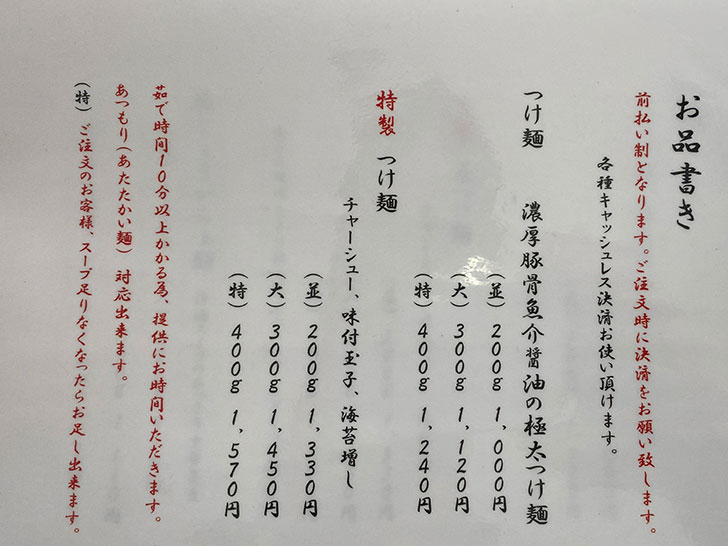 お品書き
前払い制となります。ご注文時に決済をお願い致します。
各種キャッシュレス決済お使い頂けます。
つけ麺 濃厚豚骨魚介醤油の極太つけ麺
(並) 200g 1,000円
(大) 300g 1,120円
(特) 400g 1,240円
特製 つけ麺
チャーシュー、味付玉子、海苔増し
(並) 200g 1,330円
(大) 300g 1,450円
(特) 400g 1,570円
茹で時間10分以上かかる為、提供にお時間いただきます。
あつもり(あたたかい麺) 対応出来ます。
(特) ご注文のお客様、スープ足りなくなったらお足し出来ます。